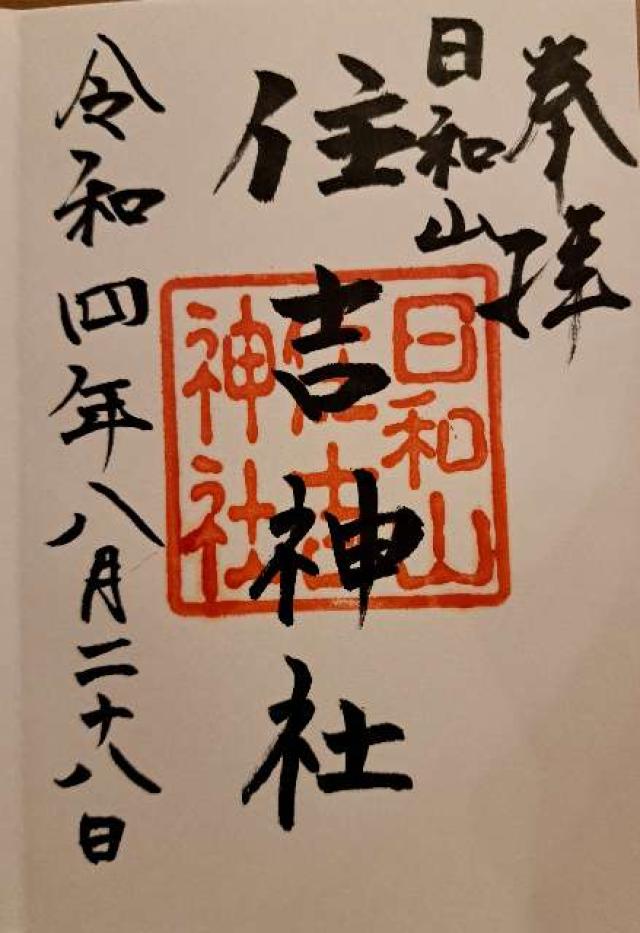 奉拝
日和山
住吉神社
令和四年八月二十八日
日和山
住吉
神社